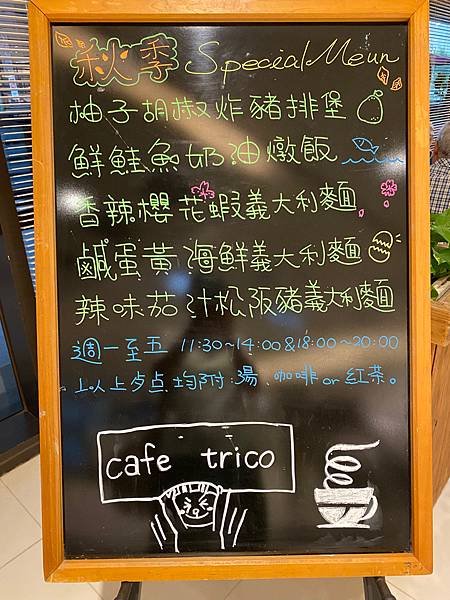 秋季 Special Meun
柚子胡椒炸豬排堡
鮮鮭魚奶油燉飯
香辣櫻花蝦義大利麵
鹹蛋黃海鮮義大利麵
辣味茄汁松阪豬義大利麵
週一至五 11:30~14:00&18:00~20:00
以上歺点均附:湯、咖啡or紅茶。
cafe trico